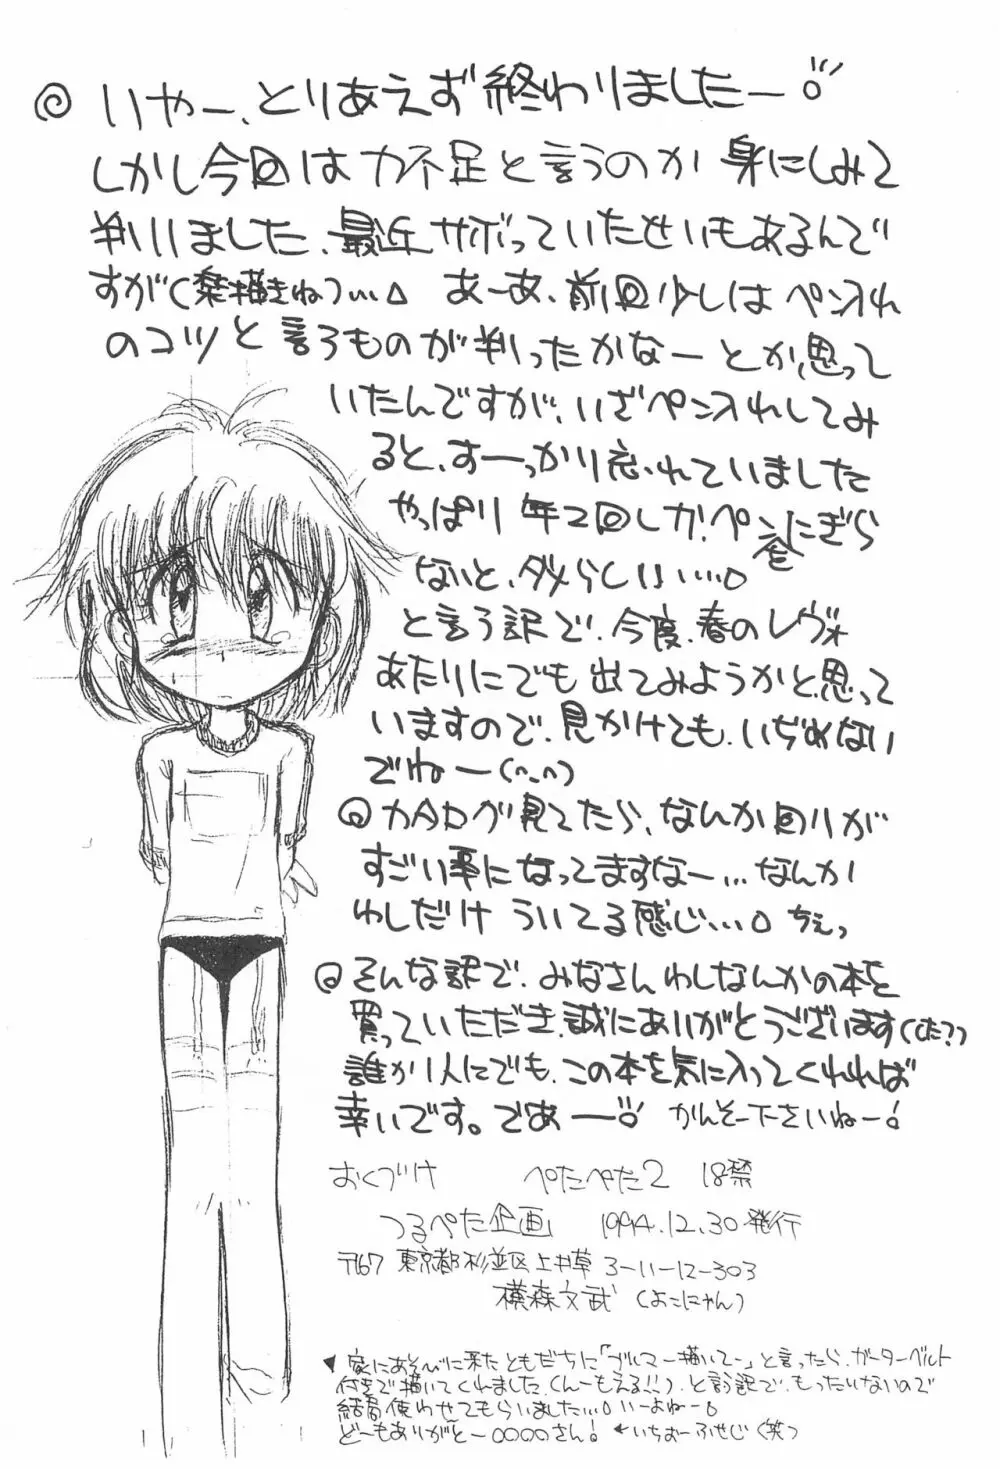 ◎いやー、とりあえず終わりましたー!
しかし今回は力不足と言うのが身にしみて
判りました、最近サボっていたせいもあるんで
すが(落描きねっ… あーあ、前回少しはペン入れ
のコツと言うものが判ったかなーとか、思って
いたんですが、いざペン入れしてみ
ると、すーっかり忘れていました
やっぱり年2回しか、ペンにぎら
ないと、ダメらしい…。
と言う訳で、今度、春のレヴォ
あたりにでも出てみようかと思って
いますので、見かけても、いぢめない
でねー(^_^)
◎カタログ見てたら、なんか回りが
すごい事になってますなー…なんか
わしだけういてる感じ…。ちぇっ
◎そんな訳で、みなさんわしなんかの本を
買っていただき、誠にありがとうございます
誰か1人にでも、この本を気に入ってくれれば
幸いです。であー! かんそー下さいねー!
おくづけ ぺたぺた2 18禁
つるぺた企画 1994.12.30発行
〒167 東京都杉並区上井草3-11-12-303
横森文武(よこにゃん)
▼家にあそびに来たともだちに「ブルマー描いてー」と言ったら、ガーターベルト
付きで描いてくれました、(んーもえる!!)、と言う訳で、もったいないので
結局使わせてもらいました…。いーよねー。
どーもありがとー○○○○さん! ←いちおーふせじ(笑)